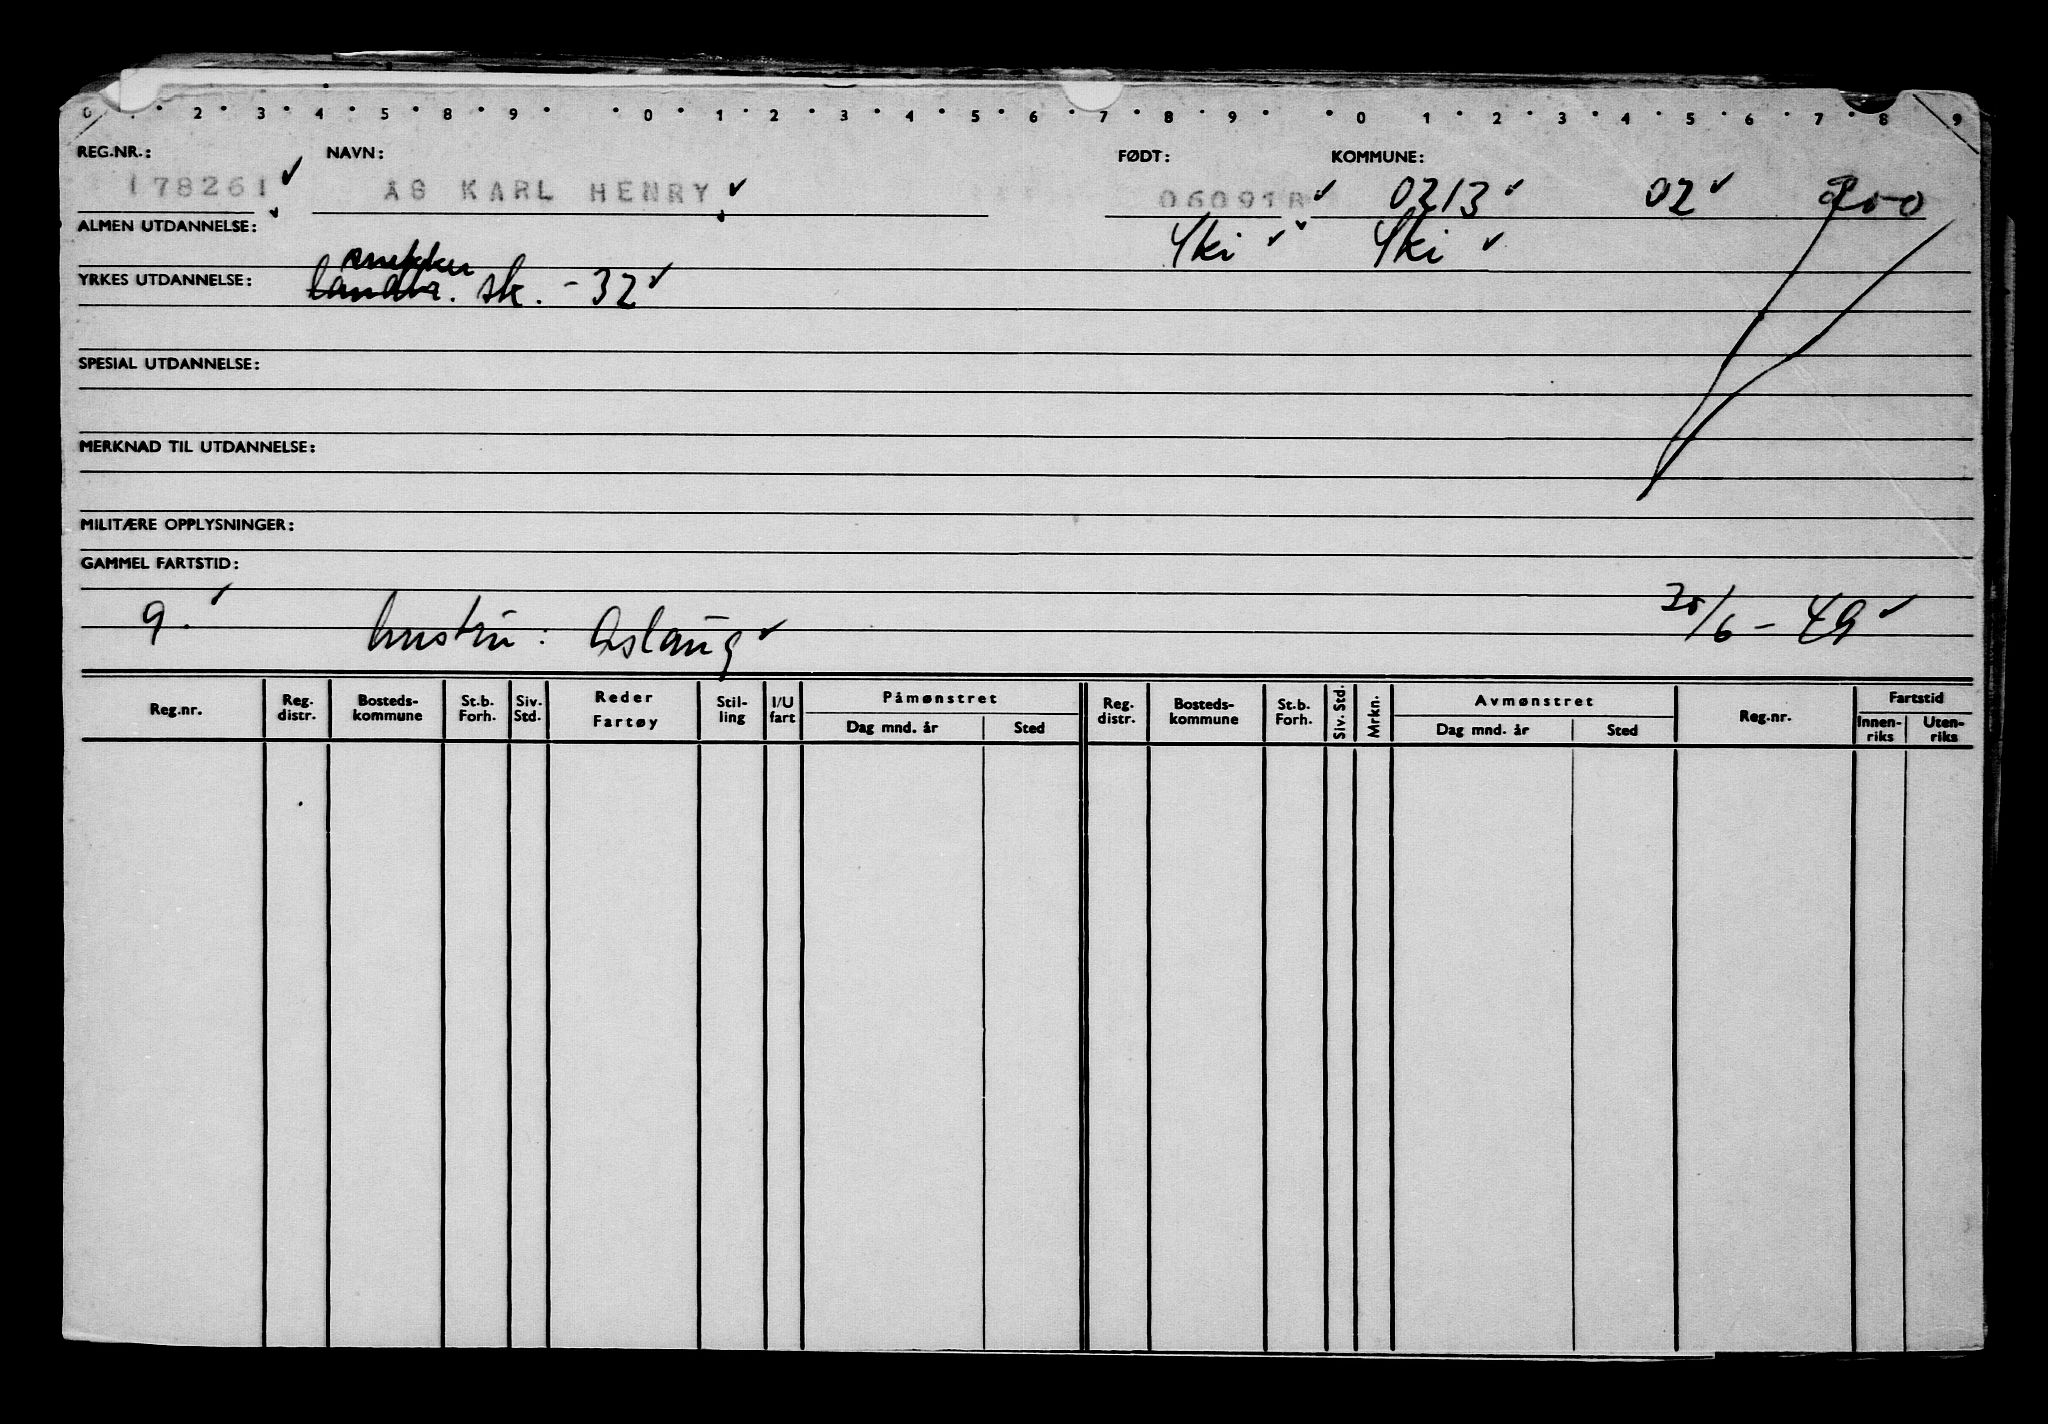 0 1 2 3 4 5 8 9 0 1 2 3 4 5 6 7 8 9 0 1 2 3 4 5 6 7 8 9
REG.NR.: NAVN: FØDT: KOMMUNE:
178261 ÅS KARL HENRY 060918 0213 02
ALMEN UTDANNELSE: Ski Ski
snekker
YRKES UTDANNELSE: landbr. sk. - 32
SPESIAL UTDANNELSE:
MERKNAD TIL UTDANNELSE:
MILITÆRE OPPLYSNINGER:
GAMMEL FARTSTID:
9. hustru: Aslaug 30/6 - 49
Reg.nr. Reg. distr. Bosteds-kommune St.b. Forh. Siv. Std. Reder Fartøy Stil-ling I/U fart Påmønstret Dag mnd. år Sted Reg. distr. Bosteds-kommune St.b. Forh. Siv. Std. Mrkn. Avmønstret Dag mnd. år Sted Reg.nr. Fartstid Innen-riks Uten-riks